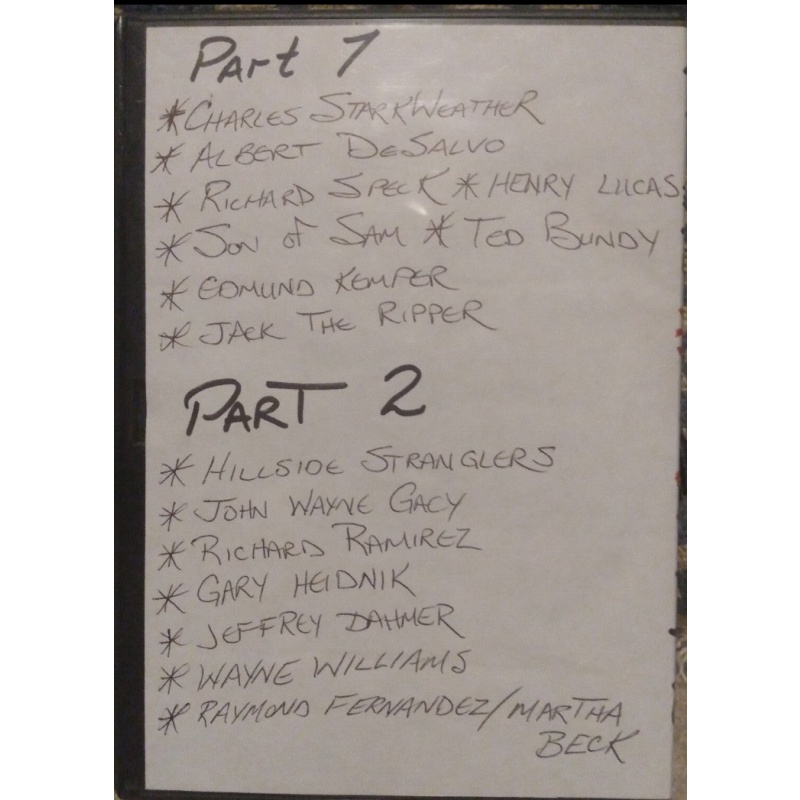 Part 1
* CHARLES STARKWEATHER
* ALBERT DeSALVO
* RICHARD SPECK * HENRY LUCAS
* SON of SAM * TED BUNDY
* EDMUND KEMPER
* JACK THE RIPPER
PART 2
* HILLSIDE STRANGLERS
* JOHN WAYNE GACY
* RICHARD RAMIREZ
* GARY HEIDNIK
* JEFFREY DAHMER
* WAYNE WILLIAMS
* RAYMOND FERNANDEZ/MARTHA
BECK